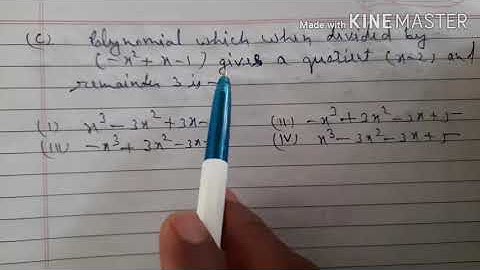 Made with KINEMASTER
(C) Polynomial which when divided by
(-x² + x - 1) gives a quotient (x-2) and
remainder 3 is -
(I) x³ - 3x² + 3x - (II) -x³ + 3x² - 3x + 5
(III) -x³ + 3x² - 3x (IV) x³ - 3x² - 3x + 5